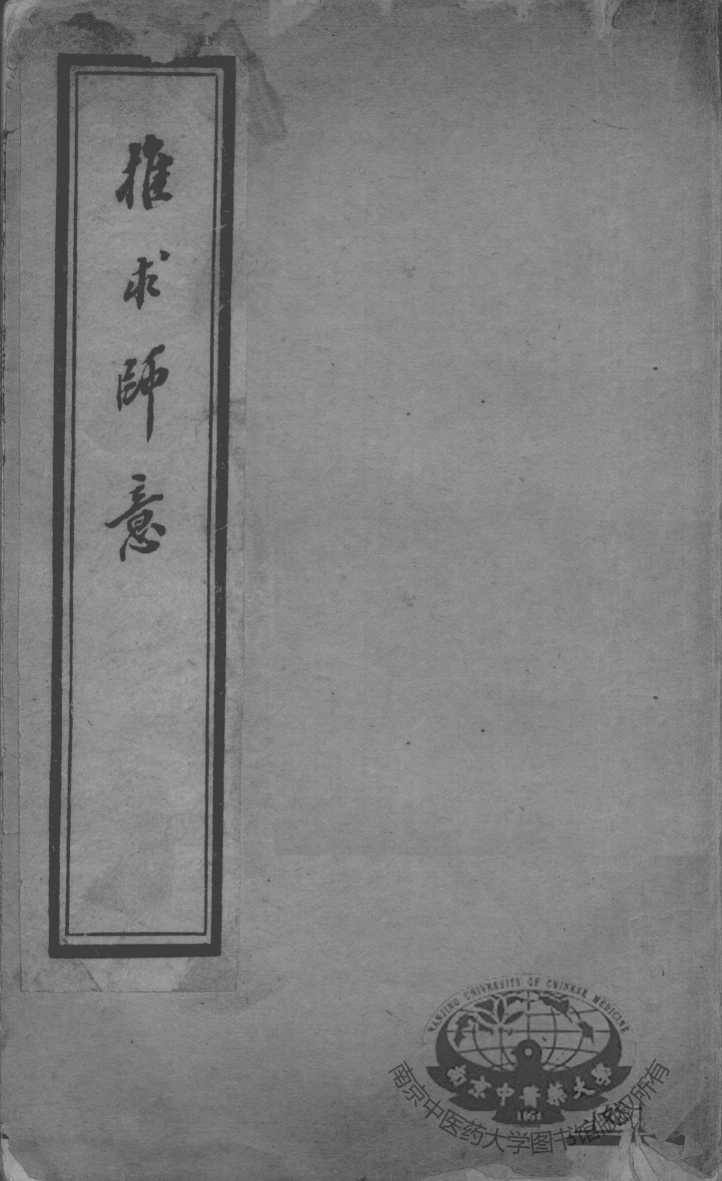 推求師意
NANJING UNIVERSITY OF CHINESE MEDICINE
南京中醫藥大學
1954
南京中医药大学图书馆版权所有